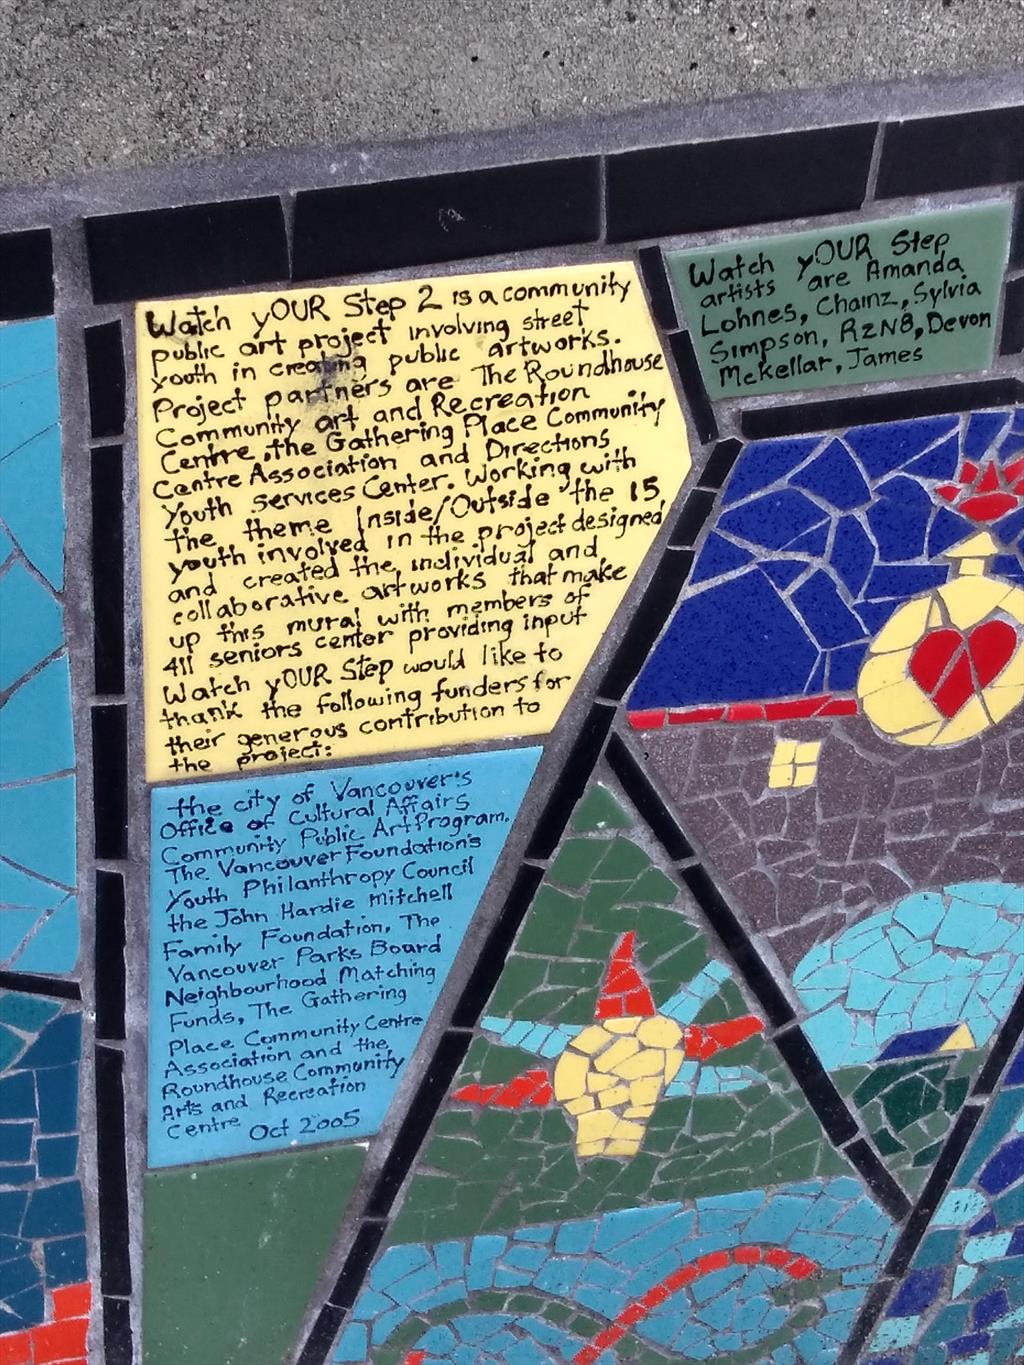 Watch yOUR Step 2 is a community
public art project involving street
youth in creating public artworks.
Project partners are The Roundhouse
Community art and Recreation
Centre, the Gathering Place Community
Centre Association and Directions
Youth services Center. Working with
the theme Inside/Outside the 15
youth involved in the project designed
and created the individual and
collaborative artworks that make
up this mural with members of
411 seniors center providing input
Watch yOUR Step would like to
thank the following funders for
their generous contribution to
the project:
the city of Vancouver's
Office of Cultural Affairs
Community Public Art Program.
The Vancouver Foundation's
Youth Philanthropy Council
the John Hardie Mitchell
Family Foundation, The
Vancouver Parks Board
Neighbourhood Matching
Funds, The Gathering
Place Community Centre
Association and the
Roundhouse Community
Arts and Recreation
Centre Oct 2005
Watch yOUR Step
artists are Amanda
Lohnes, Chainz, Sylvia
Simpson, RzN8, Devon
Mckellar, James